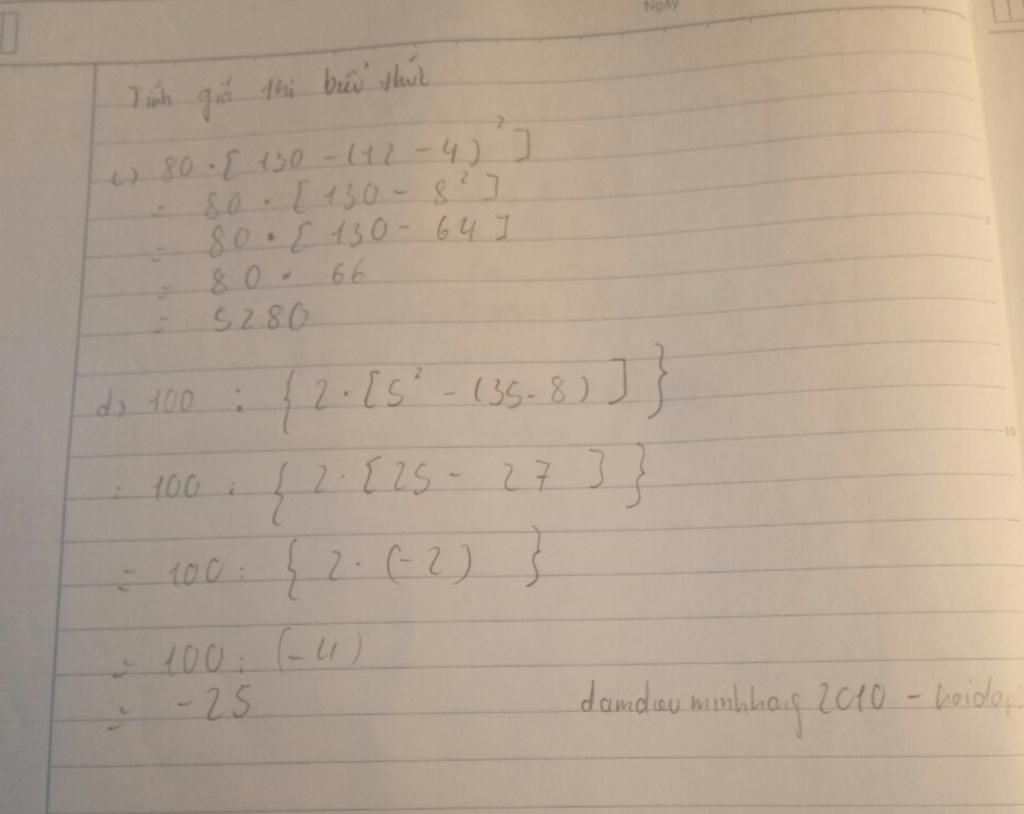 Ngày
Tính giá thi biểu thức
c) 80 . [ 130 - (12 - 4)² ]
= 80 . [ 130 - 8² ]
= 80 . [ 130 - 64 ]
= 80 . 66
= 5280
d) 100 : { 2 . [ 5² - (35 - 8) ] }
= 100 : { 2 . [ 25 - 27 ] }
= 100 : { 2 . (-2) }
= 100 : (-4)
= -25
2010 - hoidap